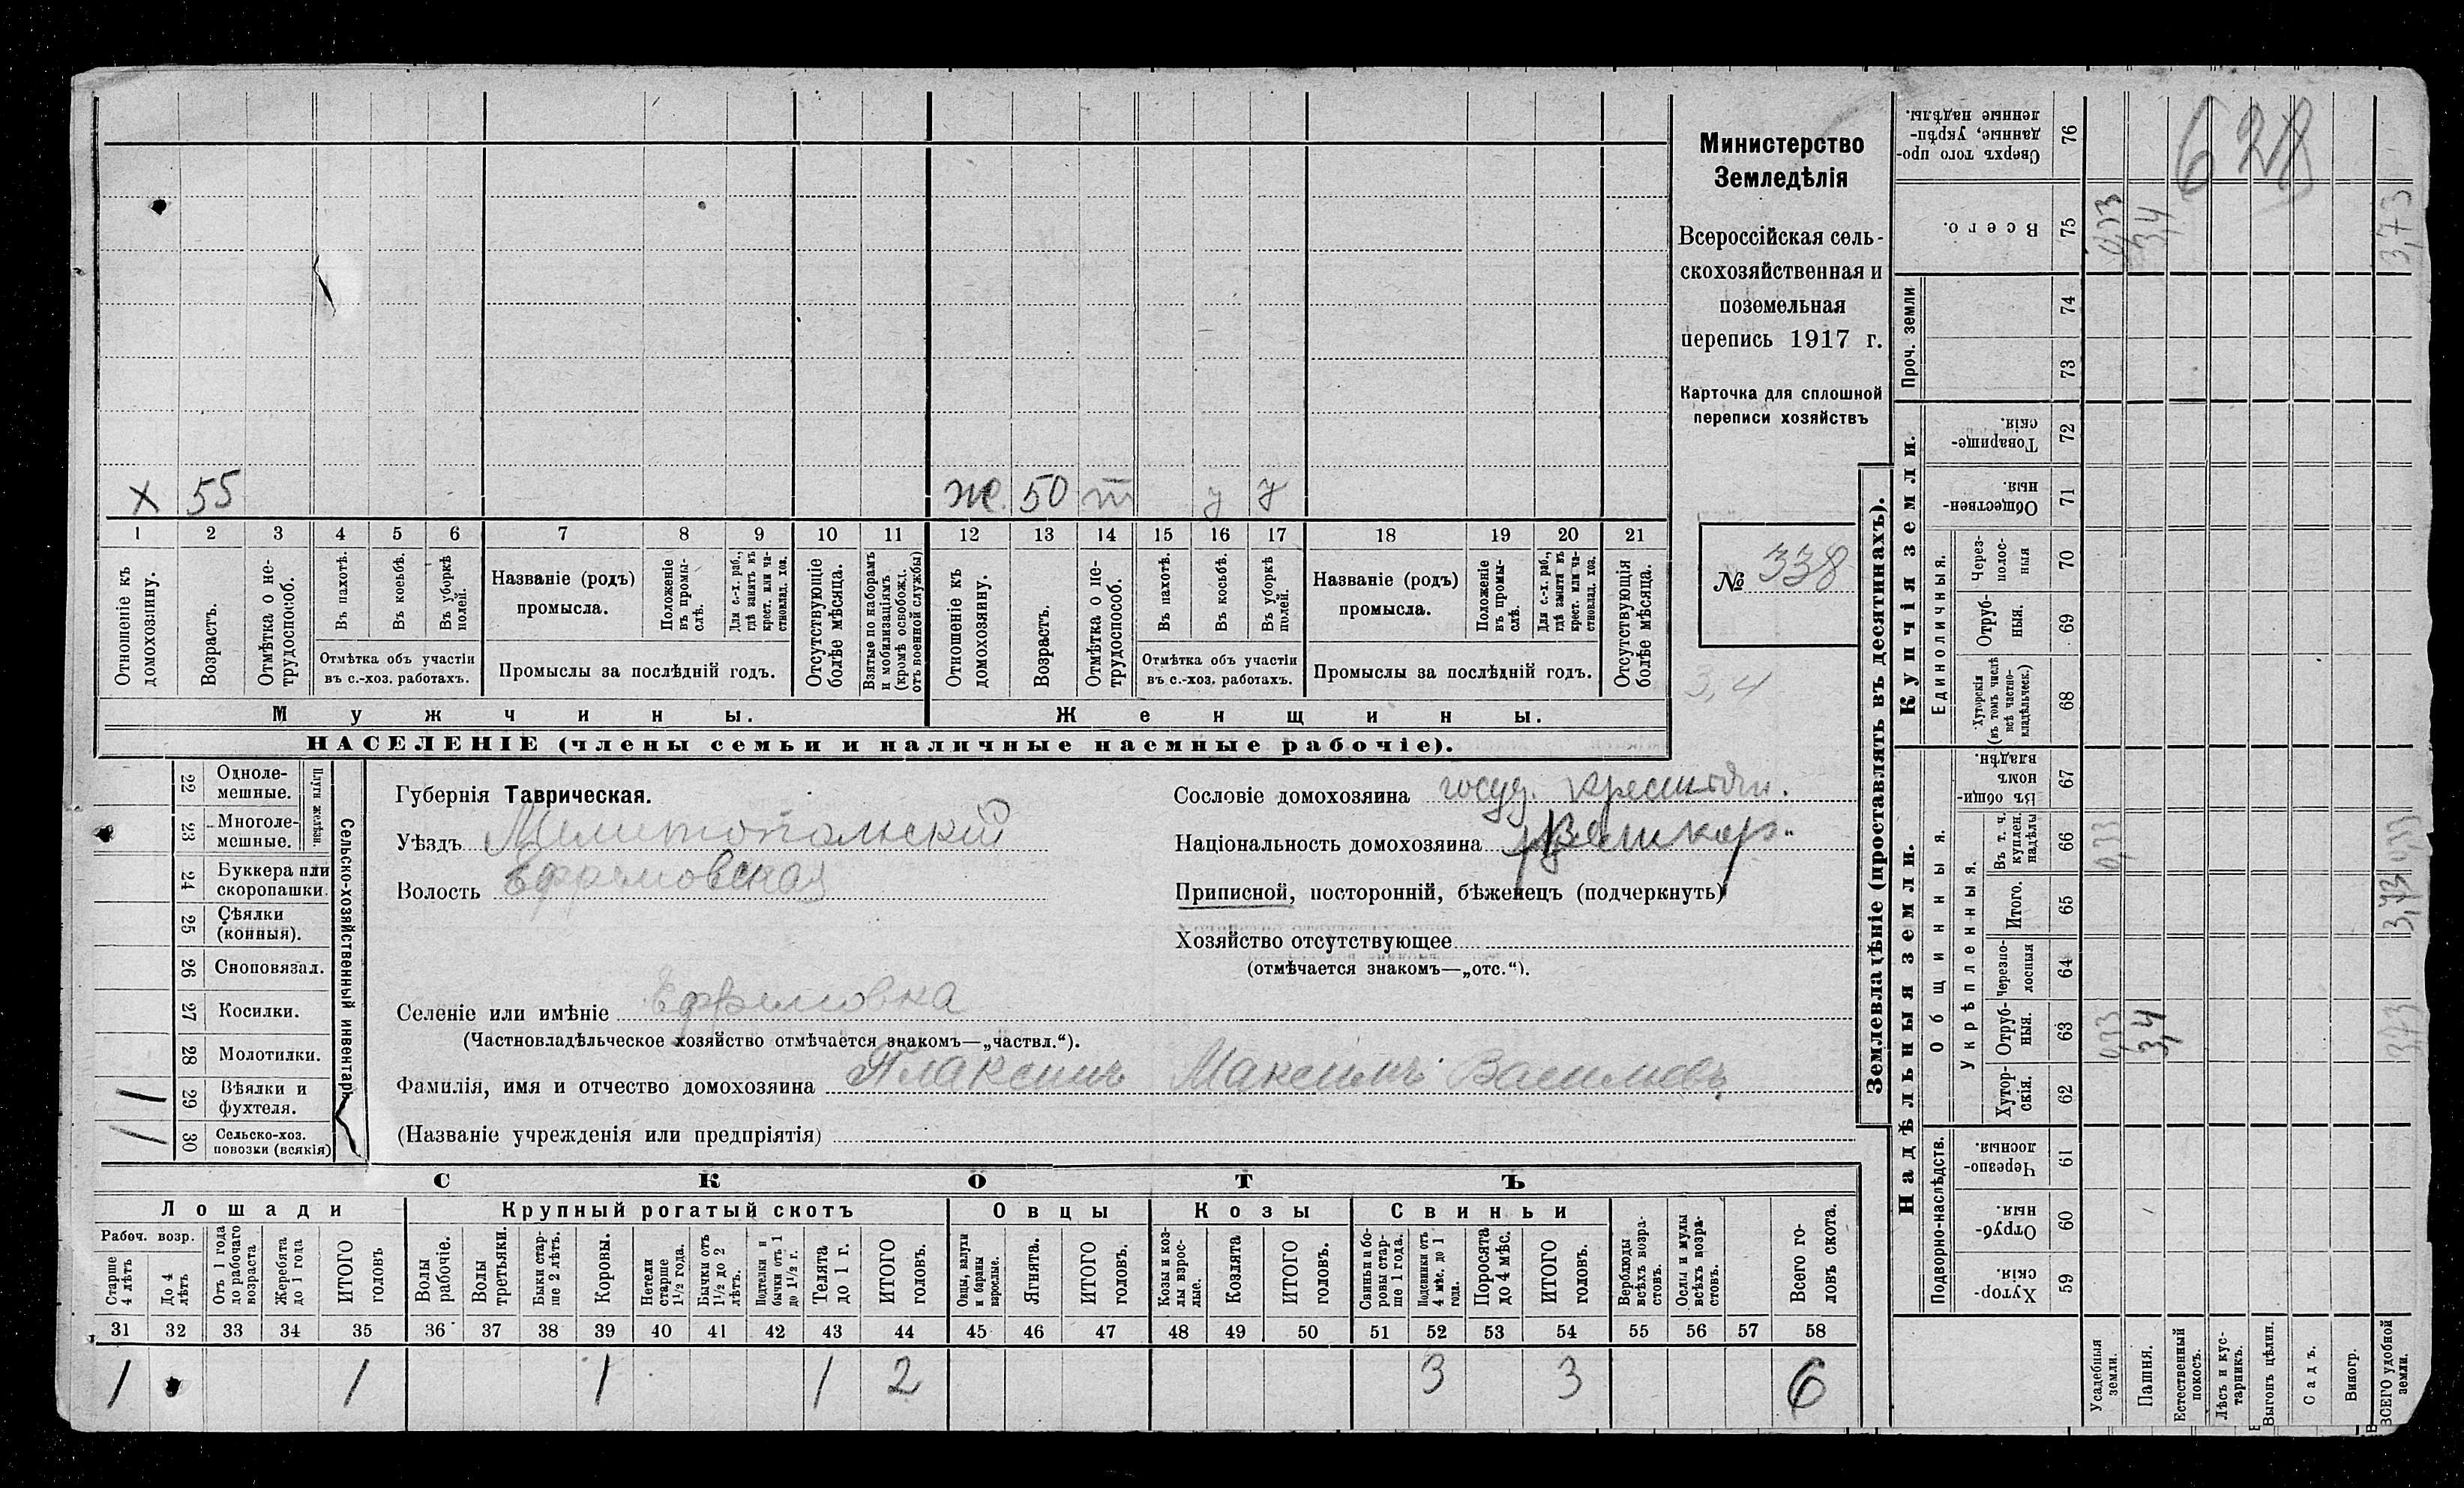 х 55 ж. 50 т у у
1 2 3 4 5 6 7 8 9 10 11 12 13 14 15 16 17 18 19 20 21
Отношеніе къ домохозяину.
Возрастъ.
Отмѣтка о не-трудоспособ.
Въ пахотѣ.
Въ косьбѣ.
Въ уборкѣ полей.
Отмѣтка объ участіи
въ с.-хоз. работахъ.
Названіе (родъ)
промысла.
Положеніе въ промы-слѣ.
Для с.-х. раб., гдѣ занятъ въ крест. или ча-стновлад. хоз.
Промыслы за послѣдній годъ.
Отсутствующіе болѣе мѣсяца.
Взятые по наборамъ и мобилизаціямъ (кромѣ освобожд. отъ военной службы)
Отношеніе къ домохозяину.
Возрастъ.
Отмѣтка о не-трудоспособ.
Въ пахотѣ.
Въ косьбѣ.
Въ уборкѣ полей.
Отмѣтка объ участіи
въ с.-хоз. работахъ.
Названіе (родъ)
промысла.
Положеніе въ промы-слѣ.
Для с.-х. раб., гдѣ занята въ крест. или ча-стновлад. хоз.
Промыслы за послѣдній годъ.
Отсутствующія болѣе мѣсяца.
Мужчины.
Женщины.
НАСЕЛЕНІЕ (члены семьи и наличные наемные рабочіе).
Министерство
Земледѣлія
Всероссійская сель-
скохозяйственная и
поземельная
перепись 1917 г.
Карточка для сплошной
переписи хозяйствъ
№ 338
3,4
Сельско-хозяйственный инвентарь
Плуги желѣзн.
22 Одноле-
мешные.
23 Многоле-
мешные.
24 Буккера или
скоропашки.
25 Сѣялки
(конныя).
26 Сноповязал.
27 Косилки.
28 Молотилки.
1 29 Вѣялки и
фухтеля.
1 30 Сельско-хоз.
повозки (всякія)
Губернія Таврическая.
Уѣздъ Мелитопольскій
Волость Ефремовская
Селеніе или имѣніе Ефремовка
(Частновладѣльческое хозяйство отмѣчается знакомъ—„частвл.“).
Фамилія, имя и отчество домохозяина Плаксинъ Максимъ Васильевъ
(Названіе учрежденія или предпріятія)
Сословіе домохозяина госуд. крестьян.
Національность домохозяина Великор.
Приписной, посторонній, бѣженецъ (подчеркнуть)
Хозяйство отсутствующее
(отмѣчается знакомъ—„отс.“).
СКОТЪ
Лошади Крупный рогатый скотъ Овцы Козы Свиньи
Рабоч. возр.
Старше 4 лѣтъ
До 4 лѣтъ
Отъ 1 года до рабочаго возраста
Жеребята до 1 года
ИТОГО головъ
Волы рабочіе.
Волы третьяки.
Быки стар-ше 2 лѣтъ.
Коровы.
Нетели старше 1½ года.
Бычки отъ 1½ до 2 лѣтъ.
Подтелки и бычки отъ 1 до 1½ г.
Телята до 1 г.
ИТОГО головъ.
Овцы, валухи и бараны взрослые.
Ягнята.
ИТОГО головъ.
Козы и коз-лы взрос-лые.
Козлята
ИТОГО головъ.
Свиньи и бо-ровы стар-ше 1 года.
Подсвинки отъ 4 мѣс. до 1 года.
Поросята до 4 мѣс.
ИТОГО головъ.
Верблюды всѣхъ возра-стовъ.
Ослы и мулы всѣхъ возра-стовъ.
Всего го-ловъ скота.
31 32 33 34 35 36 37 38 39 40 41 42 43 44 45 46 47 48 49 50 51 52 53 54 55 56 57 58
1 1 1 1 2 3 3 6
Землевладѣніе (проставлять въ десятинахъ).
Надѣльныя земли.
Купчія земли.
Проч. земли
Подворно-наслѣдств.
Общинныя.
Укрѣпленныя.
Единоличныя.
Сверхъ того про-данные, укрѣп-ленные надѣлы. 76
Всего. 75
74
73
Товарище-скія. 72
Обществен-ныя. 71
Через-полос-ныя 70
Отруб-ныя. 69
Хуторскія (въ томъ числѣ всѣ частно-владѣльческ.) 68
Въ общин-номъ владѣн. 67
Въ т. ч. куплен. надѣлы 66
Итого. 65
Черезпо-лосныя 64
Отруб-ныя. 63
Хутор-скія. 62
Черезпо-лосныя. 61
Отруб-ныя. 60
Хутор-скія. 59
Усадебныя земли.
Пашня.
Естественный покосъ.
Лѣсъ и кус-тарникъ.
Выгонъ цѣлин.
Садъ.
Виногр.
ВСЕГО удобной земли.
628
0,33
3,4
3,73
0,33
0,33
3,73
0,33
3,4
3,73